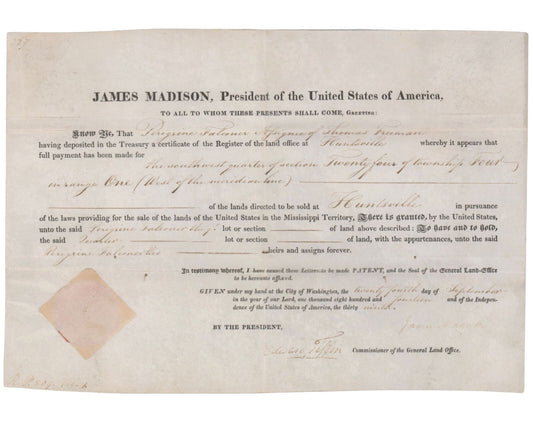 JAMES MADISON, President of the United States of America,
TO ALL TO WHOM THESE PRESENTS SHALL COME, GREETING:
Know Ye, That Peregrine Falconer Assignee of Thomas Freeman
having deposited in the Treasury a certificate of the Register of the land office at Huntsville whereby it appears that
full payment has been made for
The southwest quarter of section Twenty four of township Four
in range One (West of the meridian line)
of the lands directed to be sold at Huntsville in pursuance
of the laws providing for the sale of the lands of the United States in the Mississippi Territory, There is granted, by the United States,
unto the said Peregrine Falconer lot or section of land above described: To have and to hold,
the said quarter lot or section of land, with the appurtenances, unto the said
Peregrine Falconer his heirs and assigns forever.
In testimony whereof, I have caused these Letters to be made PATENT, and the Seal of the General Land-Office
to be hereunto affixed.
GIVEN under my hand at the City of Washington, the twenty fourth day of September
in the year of our Lord, one thousand eight hundred and fourteen and of the Indepen-
dence of the United States of America, the thirty ninth.
BY THE PRESIDENT, James Madison
Edw Tiffin Commissioner of the General Land Office.